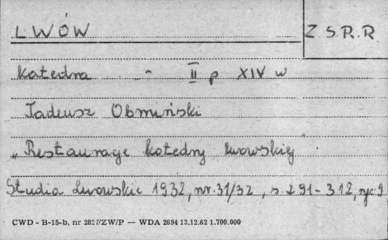 LWÓW Z.S.R.R.
Katedra - II p XIV w
Tadeusz Obmiński
"Restauracje katedry lwowskiej
Studia Lwowskie 1932, nr. 31/32, s. 291-312, ryc. 9
CWD - B-15-b, nr 2827/ZW/P — WDA 2694 13.12.62 1.700.000